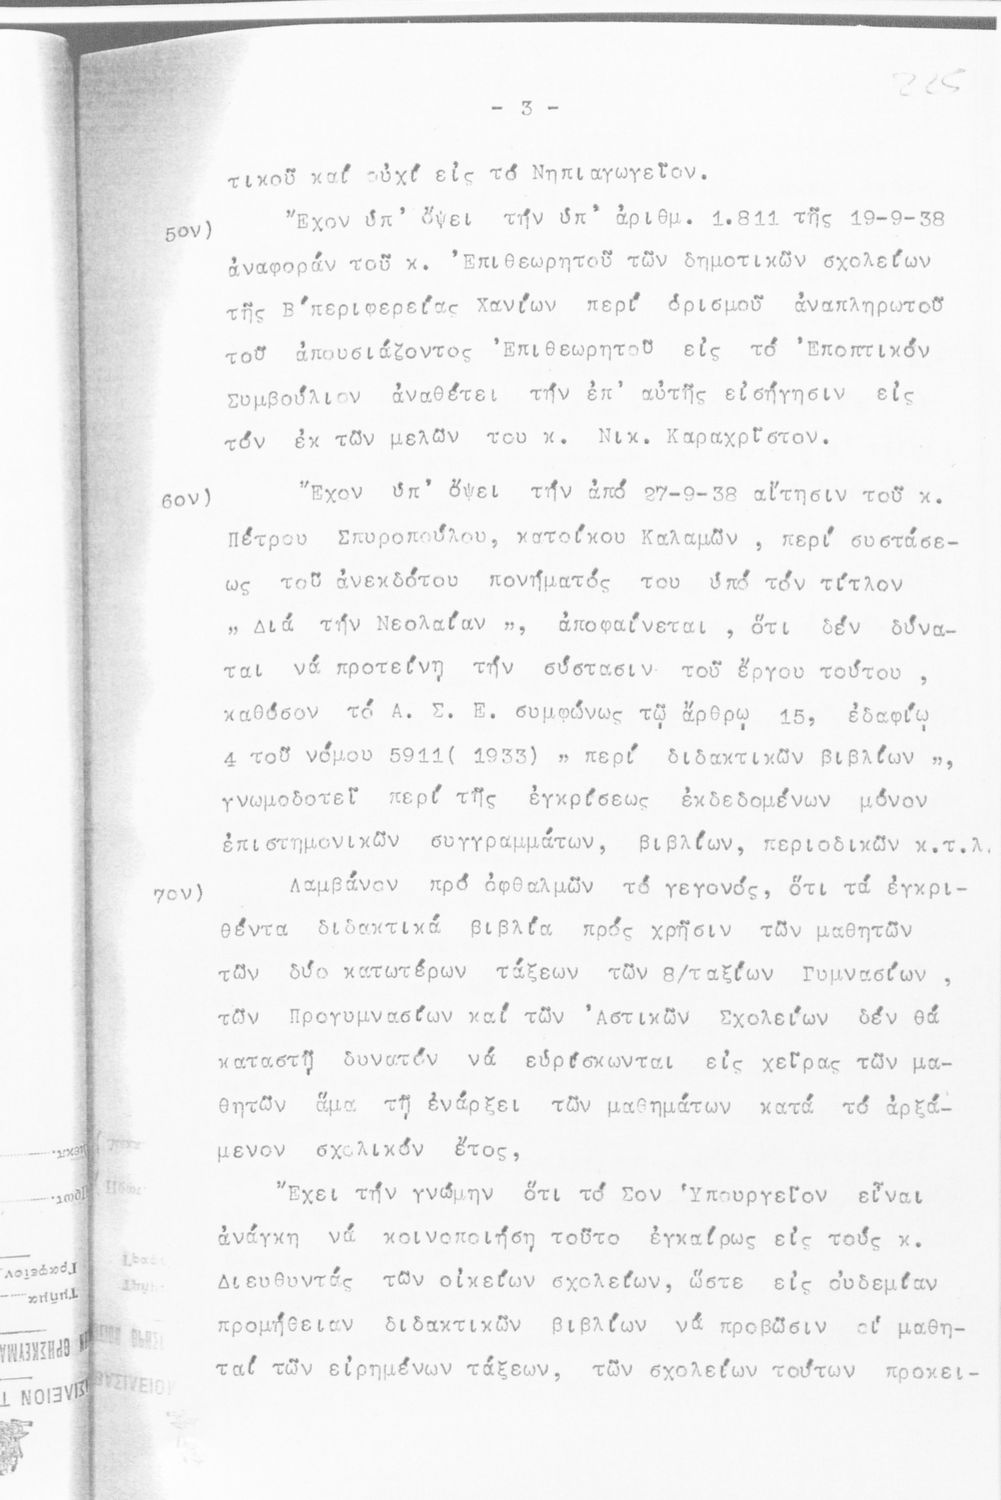 225
- 3 -
τικοῦ καί οὐχί εἰς τό Νηπιαγωγεῖον.
5ον) Ἔχον ὑπ' ὄψει τήν ὑπ' ἀριθμ. 1.811 τῆς 19-9-38
ἀναφοράν τοῦ κ. Ἐπιθεωρητοῦ τῶν δημοτικῶν σχολείων
τῆς Β΄περιφερείας Χανίων περί ὁρισμοῦ ἀναπληρωτοῦ
τοῦ ἀπουσιάζοντος Ἐπιθεωρητοῦ εἰς τό Ἐποπτικόν
Συμβούλιον ἀναθέτει τήν ἐπ' αὐτῆς εἰσήγησιν εἰς
τόν ἐκ τῶν μελῶν του κ. Νικ. Καραχρῖστον.
6ον) Ἔχον ὑπ' ὄψει τήν ἀπό 27-9-38 αἴτησιν τοῦ κ.
Πέτρου Σπυροπούλου, κατοίκου Καλαμῶν , περί συστάσε-
ως τοῦ ἀνεκδότου πονήματός του ὑπό τόν τίτλον
„ Διά τήν Νεολαίαν „, ἀποφαίνεται , ὅτι δέν δύνα-
ται νά προτείνῃ τήν σύστασιν τοῦ ἔργου τούτου ,
καθόσον τό Α. Σ. Ε. συμφώνως τῷ ἄρθρῳ 15, ἐδαφίῳ
4 τοῦ νόμου 5911( 1933) „ περί διδακτικῶν βιβλίων „,
γνωμοδοτεῖ περί τῆς ἐγκρίσεως ἐκδεδομένων μόνον
ἐπιστημονικῶν συγγραμμάτων, βιβλίων, περιοδικῶν κ.τ.λ.
7ον) Λαμβάνον πρό ὀφθαλμῶν τό γεγονός, ὅτι τά ἐγκρι-
θέντα διδακτικά βιβλία πρός χρῆσιν τῶν μαθητῶν
τῶν δύο κατωτέρων τάξεων τῶν 8/ταξίων Γυμνασίων ,
τῶν Προγυμνασίων καί τῶν Ἀστικῶν Σχολείων δέν θά
καταστῇ δυνατόν νά εὑρίσκωνται εἰς χεῖρας τῶν μα-
θητῶν ἅμα τῇ ἐνάρξει τῶν μαθημάτων κατά τό ἀρξά-
μενον σχολικόν ἔτος,
Ἔχει τήν γνώμην ὅτι τό Σον Ὑπουργεῖον εἶναι
ἀνάγκη νά κοινοποιήσῃ τοῦτο ἐγκαίρως εἰς τούς κ.
Διευθυντάς τῶν οἰκείων σχολείων, ὥστε εἰς οὐδεμίαν
προμήθειαν διδακτικῶν βιβλίων νά προβῶσιν οἱ μαθη-
ταί τῶν εἰρημένων τάξεων, τῶν σχολείων τούτων προκει-